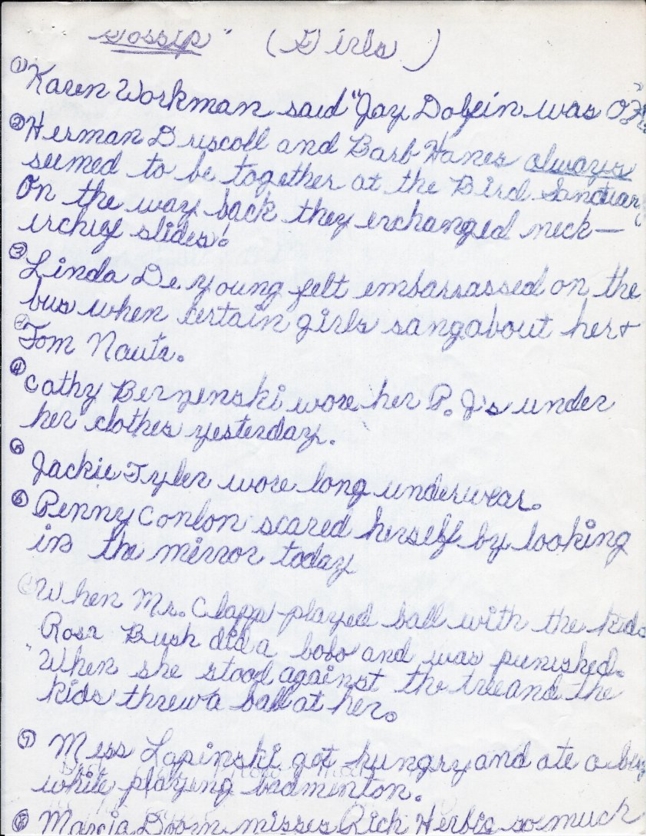 "Gossip" (Girls)
① Karen Workman said "Jay Dolfin was
② Herman Driscoll and Barb Hanes always
seemed to be together at the Bird Sanctuary
On the way back they exchanged neck-
irchief slides!
③ Linda De young felt embarrassed on the
bus when certain girls sang about her +
Tom Nautz.
④ Cathy Berzenski wore her P.J's under
her clothes yesterday.
⑤ Jackie Tyler wore long underwear.
⑥ Penny Conlon scared herself by looking
in the mirror today
When Mr. Clapp played ball with the kids
Rosa Bush did a bobo and was punished.
When she stood against the tree and the
kids threw a ball at her.
⑦ Miss Lapinski got hungry and ate a bug
while playing badmenton.
⑧ Marcia Doorn misses Rich Herbig so much